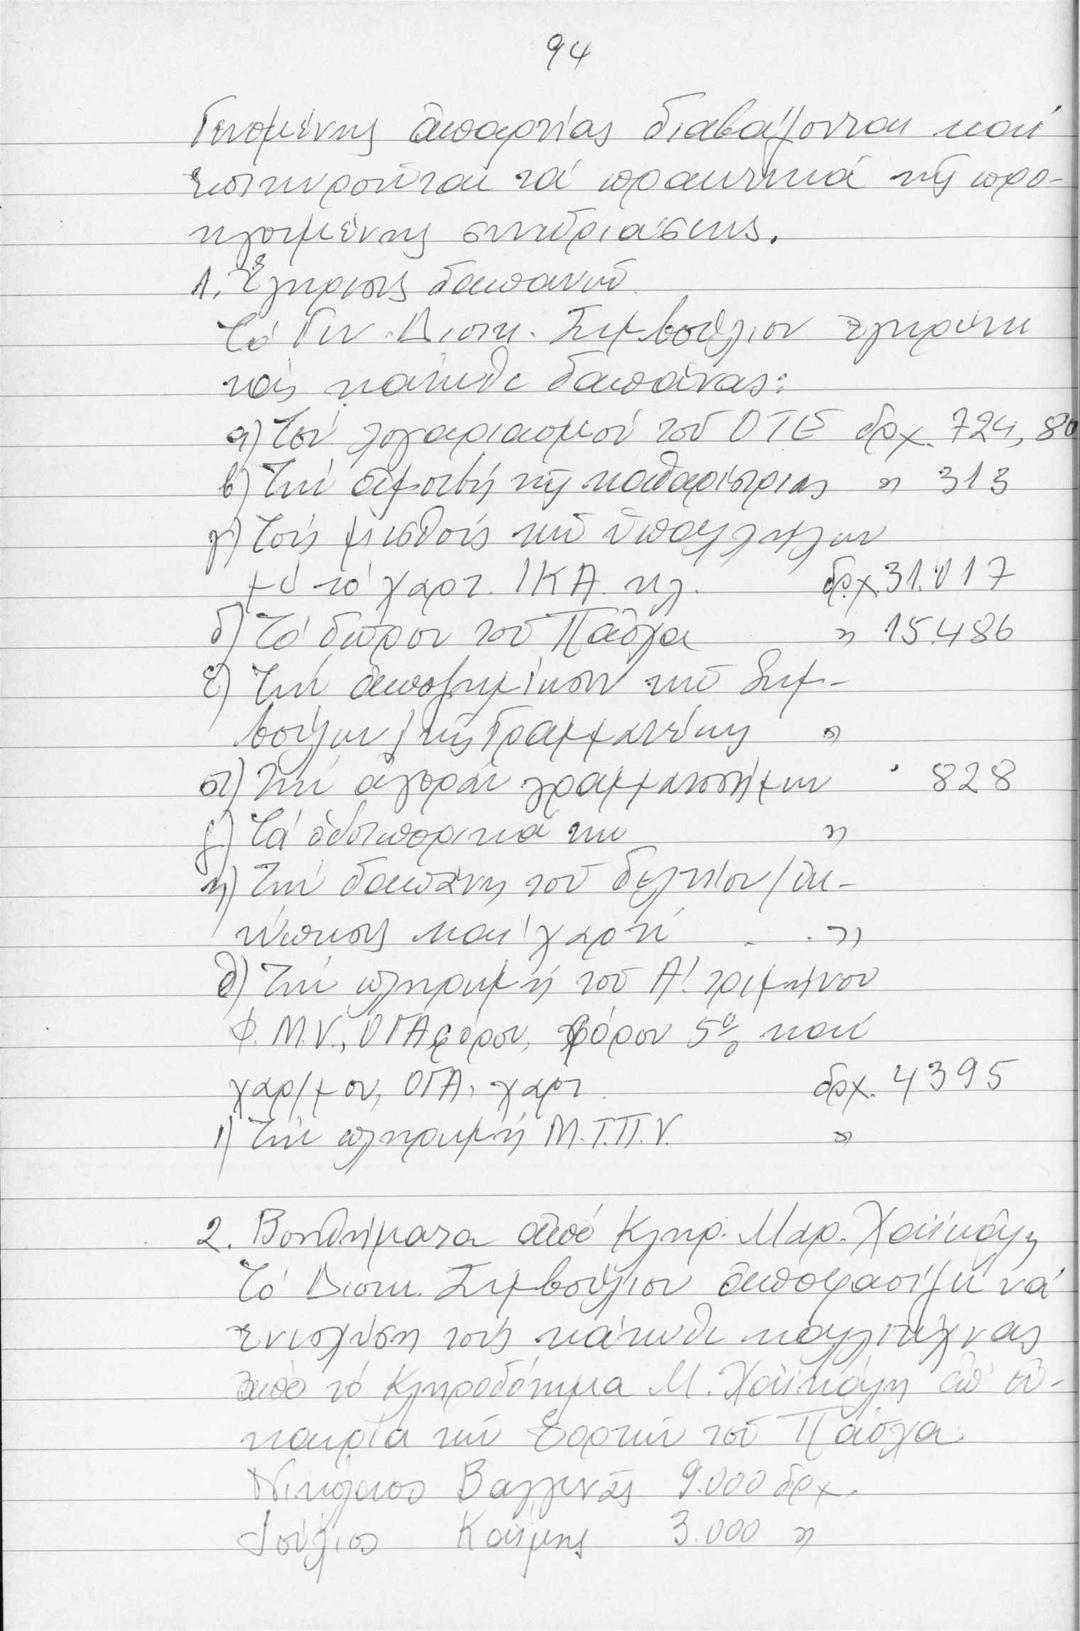 94
Γενομένης ἀπαρτίας διαβάζονται καί
ἐπικυροῦνται τά πρακτικά τῆς προ-
ηγουμένης συνεδριάσεως.
1. Ἔγκρισις δαπανῶν
Τό Γεν. Διοικ. Συμβούλιον ἐγκρίνει
τάς κάτωθι δαπάνας:
α) Τόν λογαριασμόν τοῦ ΟΤΕ δρχ. 724,80
β) Τήν ἀμοιβή τῆς καθαρίστριας " 313
γ) Τούς μισθούς τῶν ὑπαλλήλων
μέ τό χαρτ. ΙΚΑ κλ. δρχ. 31.017
δ) Τό δῶρον τοῦ Πάσχα " 15.486
ε) Τήν ἀποζημίωσιν τῶν Συμ-
βούλων/τῆς Γραμματέως "
στ) Τήν ἀγοράν γραμματοσήμων " 828
ζ) Τά ὁδοιπορικά των "
η) Τήν δαπάνη τοῦ δελτίου/ἐκ-
τύπωσις καί χαρτί "
θ) Τήν πληρωμή τοῦ Α' τριμήνου
Φ.Μ.Υ., ΟΓΑ φόρου, φόρου 5% καί
χαρ/μου, ΟΓΑ, χαρτ. δρχ. 4395
ι) Τήν πληρωμή Μ.Τ.Π.Υ. "
2. Βοηθήματα ἀπό Κληρ. Μαρ. Χαϊκάλη
Τό Διοικ. Συμβούλιον ἀποφασίζει νά
ἐνισχύση τούς κάτωθι καλλιτέχνας
ἀπό τό Κληροδότημα Μ. Χαϊκάλη ἐπ' εὐ-
καιρία τῶν Ἑορτῶν τοῦ Πάσχα.
Νικόλαος Βαλλινᾶς 9.000 δρχ.
Ἰούλιος Καΐμης 3.000 "